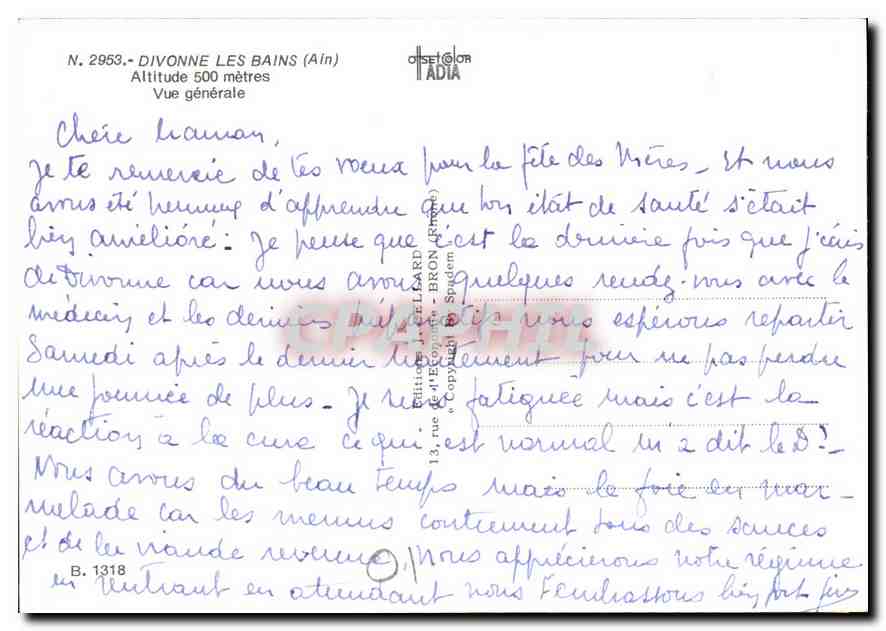 N. 2953.- DIVONNE LES BAINS (Ain)
Altitude 500 mètres
Vue générale
OFFSET COLOR
IADIA
Chère Maman,
Je te remercie de tes voeux pour la fête des Mères - Et nous
avons été heureux d'apprendre que ton état de santé s'était
bien amélioré. Je pense que c'est la dernière fois que j'écris
de Divonne car nous avons quelques rendez-vous avec le
médecin et les derniers préparatifs nous espérons repartir
Samedi après le dernier traitement pour ne pas perdre
une journée de plus - Je suis fatiguée mais c'est la
réaction à la cure ce qui est normal m'a dit le Dr -
Nous avons du beau temps mais le foie en mar-
melade car les menus contiennent tous des sauces
et de la viande revenue, Nous apprécierons notre régime
en rentrant en attendant nous t'embrassons bien fort
Editions J. CELLARD
13, rue de l'Economie - BRON (Rhône)
« Copyright By Spadem »
CPAPHIL
B. 1318